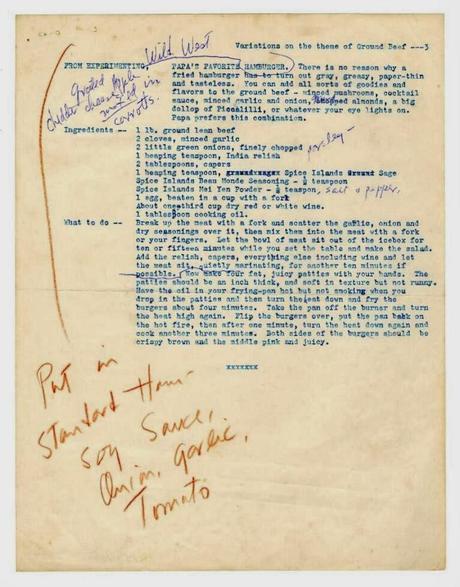 Variations on the theme of Ground Beef ---3
Wild West
FROM EXPERIMENTING, PAPA'S FAVORITE HAMBURGER. There is no reason why a
fried hamburger has to turn out gray, greasy, paper-thin
and tasteless. You can add all sorts of goodies and
flavors to the ground beef - minced mushrooms, cocktail
sauce, minced garlic and onion, chopped almonds, a big
dollop of Piccalilli, or whatever your eye lights on.
Papa prefers this combination.
grated apple
cheddar cheese
mixed in
carrots.
Ingredients -- 1 lb. ground lean beef
2 cloves, minced garlic
2 little green onions, finely chopped parsley
1 heaping teaspoon, India relish
2 tablespoons, capers
1 heaping teaspoon, Spice Islands Sage
Spice Islands Beau Monde Seasoning - ½ teaspoon
Spice Islands Mei Yen Powder - ½ teaspoon, salt & pepper,
1 egg, beaten in a cup with a fork
About one third cup dry red or white wine.
1 tablespoon cooking oil.
What to do -- Break up the meat with a fork and scatter the garlic, onion and
dry seasonings over it, then mix them into the meat with a fork
or your fingers. Let the bowl of meat sit out of the icebox for
ten or fifteen minutes while you set the table and make the salad.
Add the relish, capers, everything else including wine and let
the meat sit, quietly marinating, for another ten minutes if
possible. Now make four fat, juicy patties with your hands. The
patties should be an inch thick, and soft in texture but not runny.
Have the oil in your frying-pan hot but not smoking when you
drop in the patties and then turn the heat down and fry the
burgers about four minutes. Take the pan off the burner and turn
the heat high again. Flip the burgers over, put the pan back on
the hot fire, then after one minute, turn the heat down again and
cook another three minutes. Both sides of the burgers should be
crispy brown and the middle pink and juicy.
xxxxxxx
Put in
Standard Ham-
Soy Sauce,
Onion, garlic,
Tomato